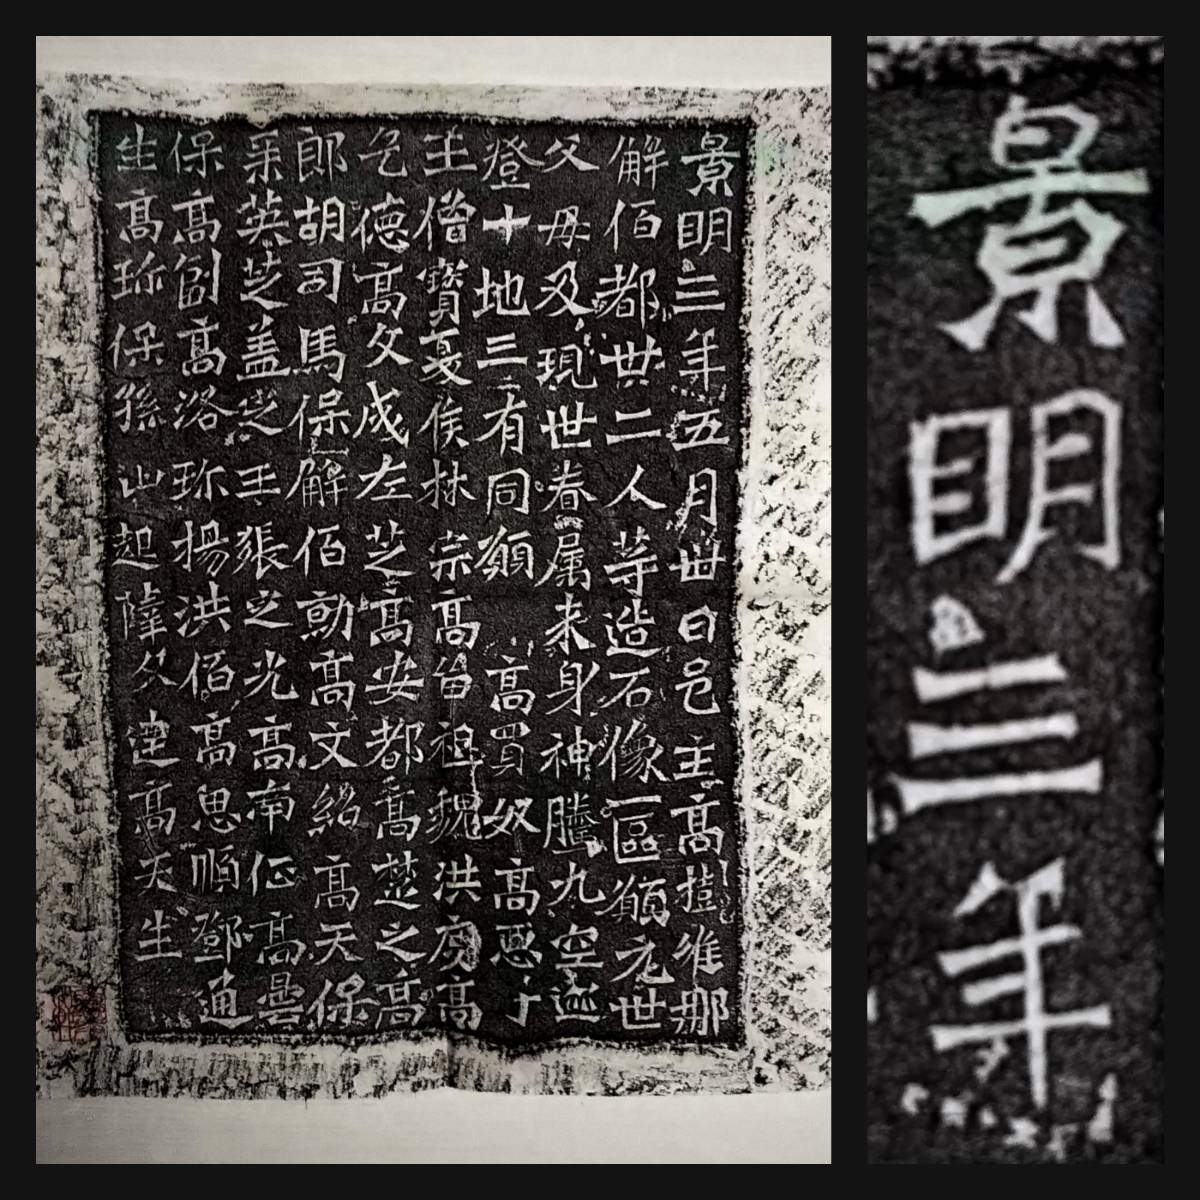 景明三年五月卅日邑主高樹維那
解佰都卅二人等造石像一區願元世
父母及現世眷属来身神騰九空迹
登十地三有同願高買奴高惡子
王僧寶夏侯林宗高留祖魏洪度高
乞德高文成左芝高安都高楚之高
郎胡司馬保解佰勳高文紹高天保
英芝盖定王張之光高南征高曇
保高洛珎揚洪佰高思順鄧通
生高珎保孫山起薩文達高天生
景明三年